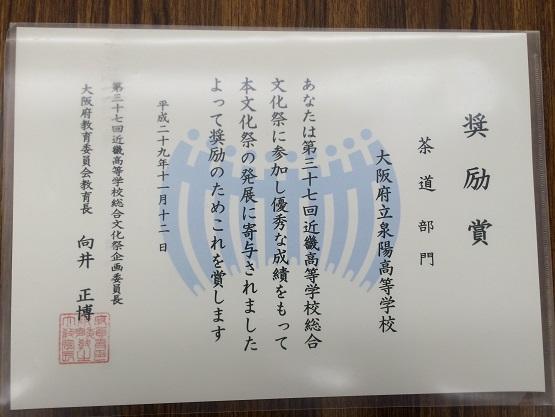 奨励賞
茶道部門
大阪府立泉陽高等学校
あなたは第三十七回近畿高等学校総合
文化祭に参加し優秀な成績をもって
本文化祭の発展に寄与されました
よって奨励のためこれを賞します
平成二十九年十一月十二日
第三十七回近畿高等学校総合文化祭企画委員長
大阪府教育委員会教育長 向井正博